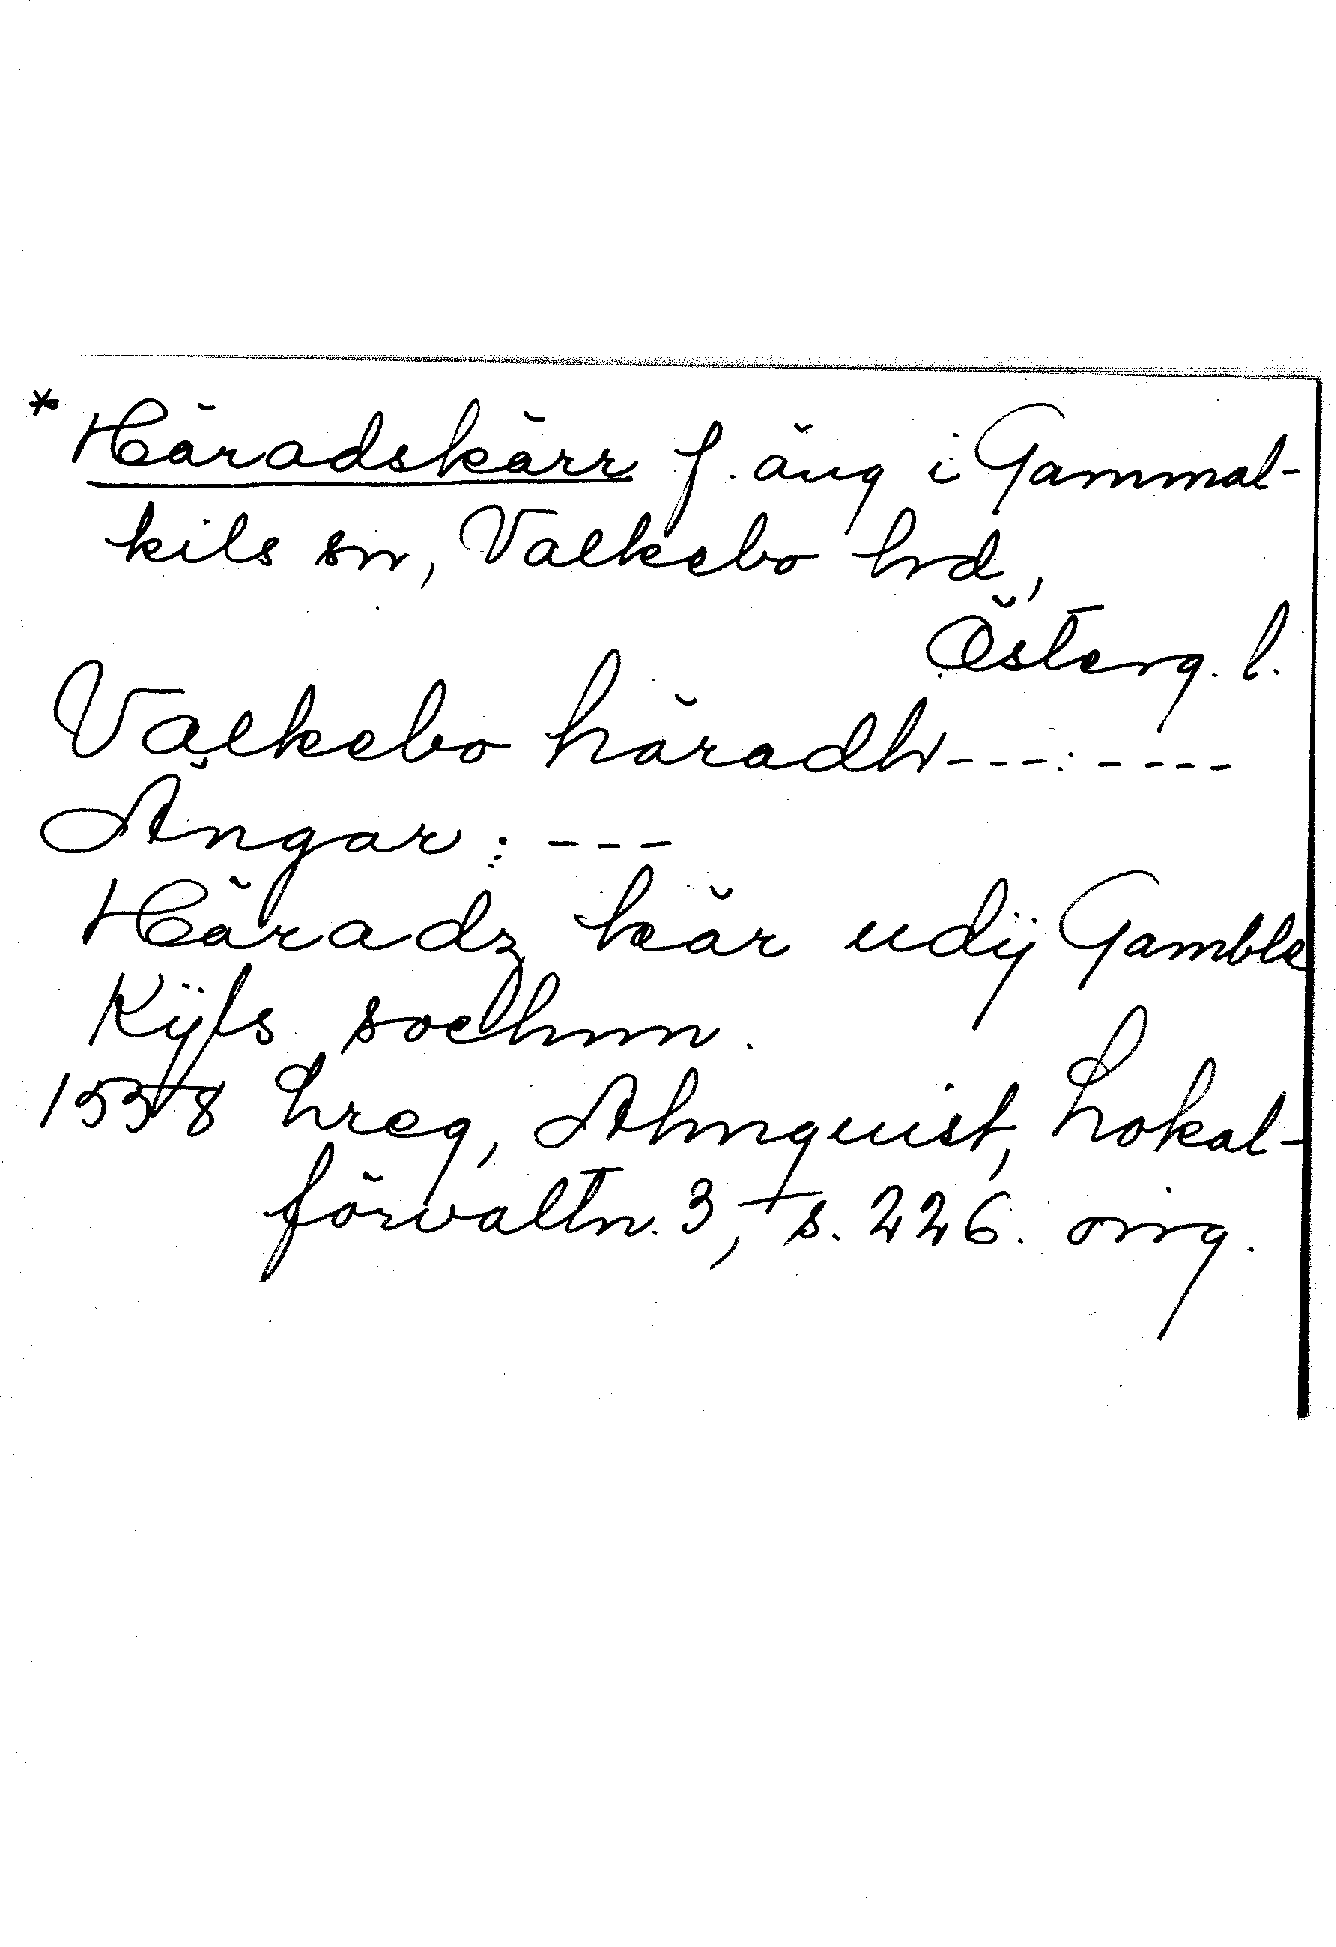 * Häradskärr f. äng i Gammal-
kils sn, Valkebo hd,
Österg. l.
Valkebo häradh---:----
Ängar: ---
Häradz kär udÿ Gamble
Kÿls sochnn.
1558 Lreg, Almquist, Lokal-
förvaltn. 3, s. 226. orig.